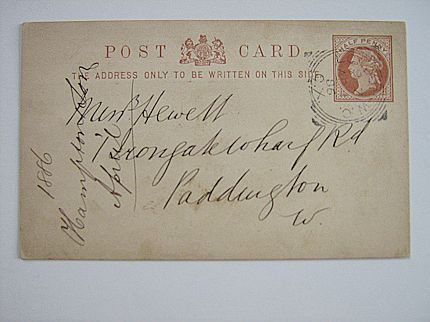 POST CARD
THE ADDRESS ONLY TO BE WRITTEN ON THIS SIDE
HALF PENNY
Hewett
Irongate Wharf Rd
Paddington
W.
1886
Hampton
April